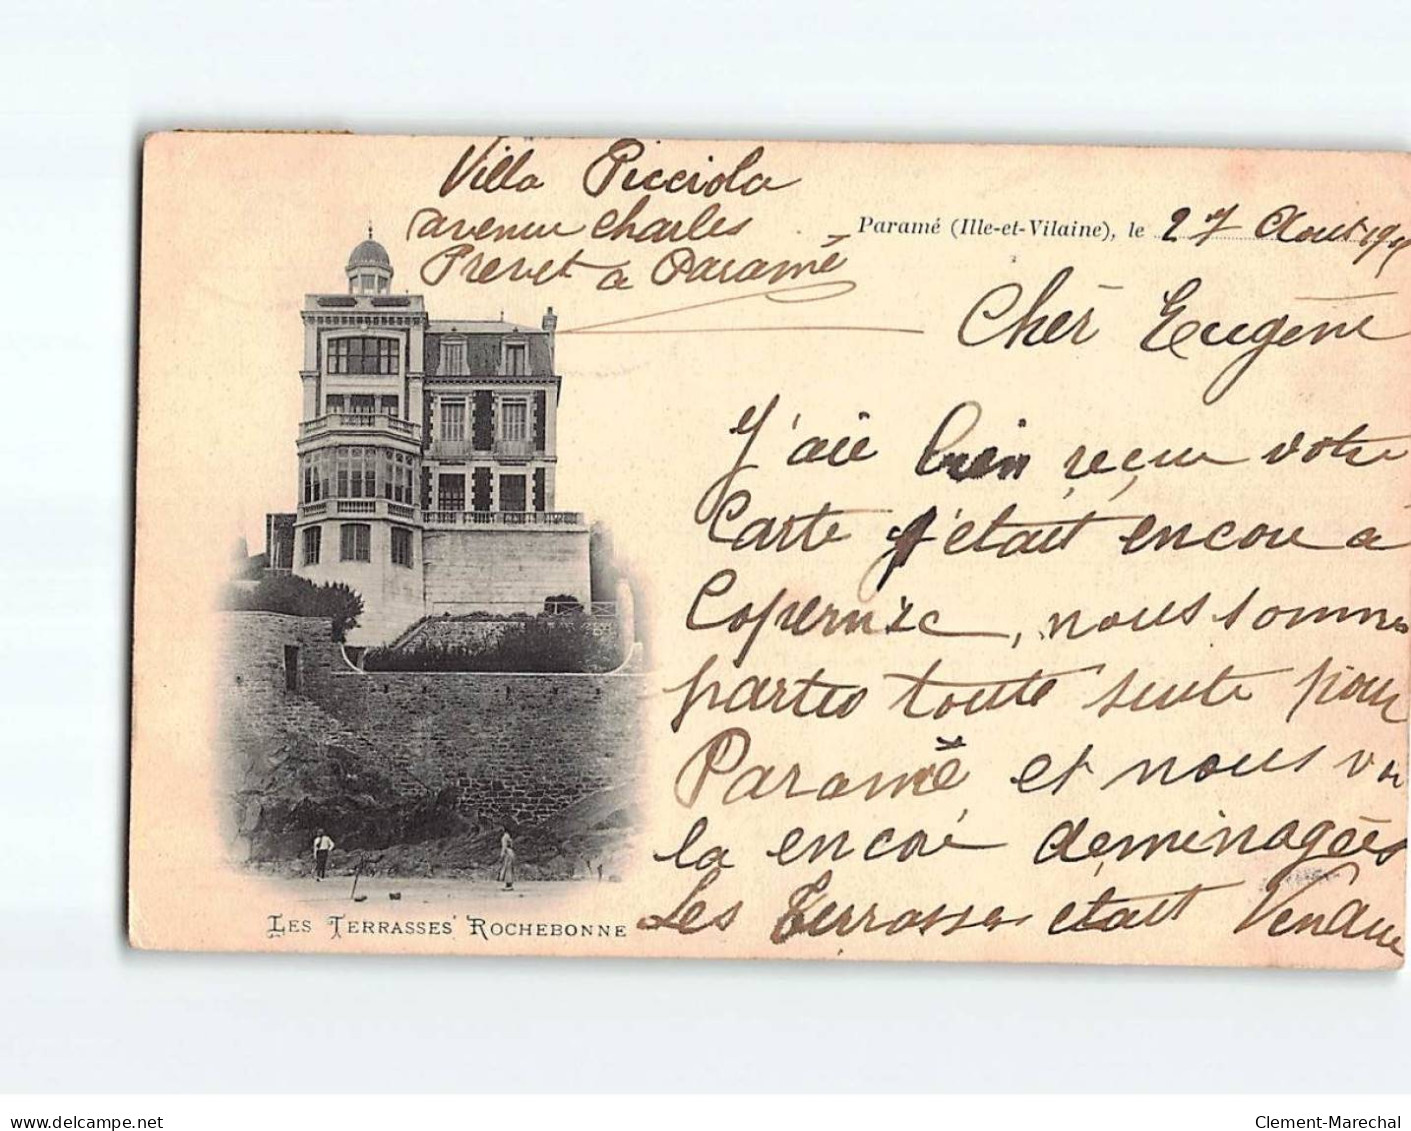 Villa Picciola
avenue Charles
Prevet a Paramé
Paramé (Ille-et-Vilaine), le 27 Aout
Cher Eugène
J'aie bien reçue votre
Carte j'était encore à
Copernic, nous somme
parties toute suite pour
Paramé et nous
la encore deminagées
Les Terrasses était Vendue
LES TERRASSES ROCHEBONNE
www.delcampe.net
Clement-Marechal